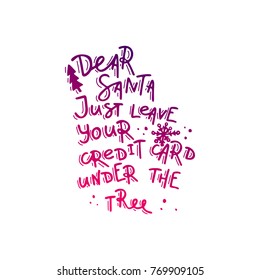 DEAR
SANTA
JUST LEAVE
YOUR
CREDIT CARD
UNDER THE
TREE
769909105